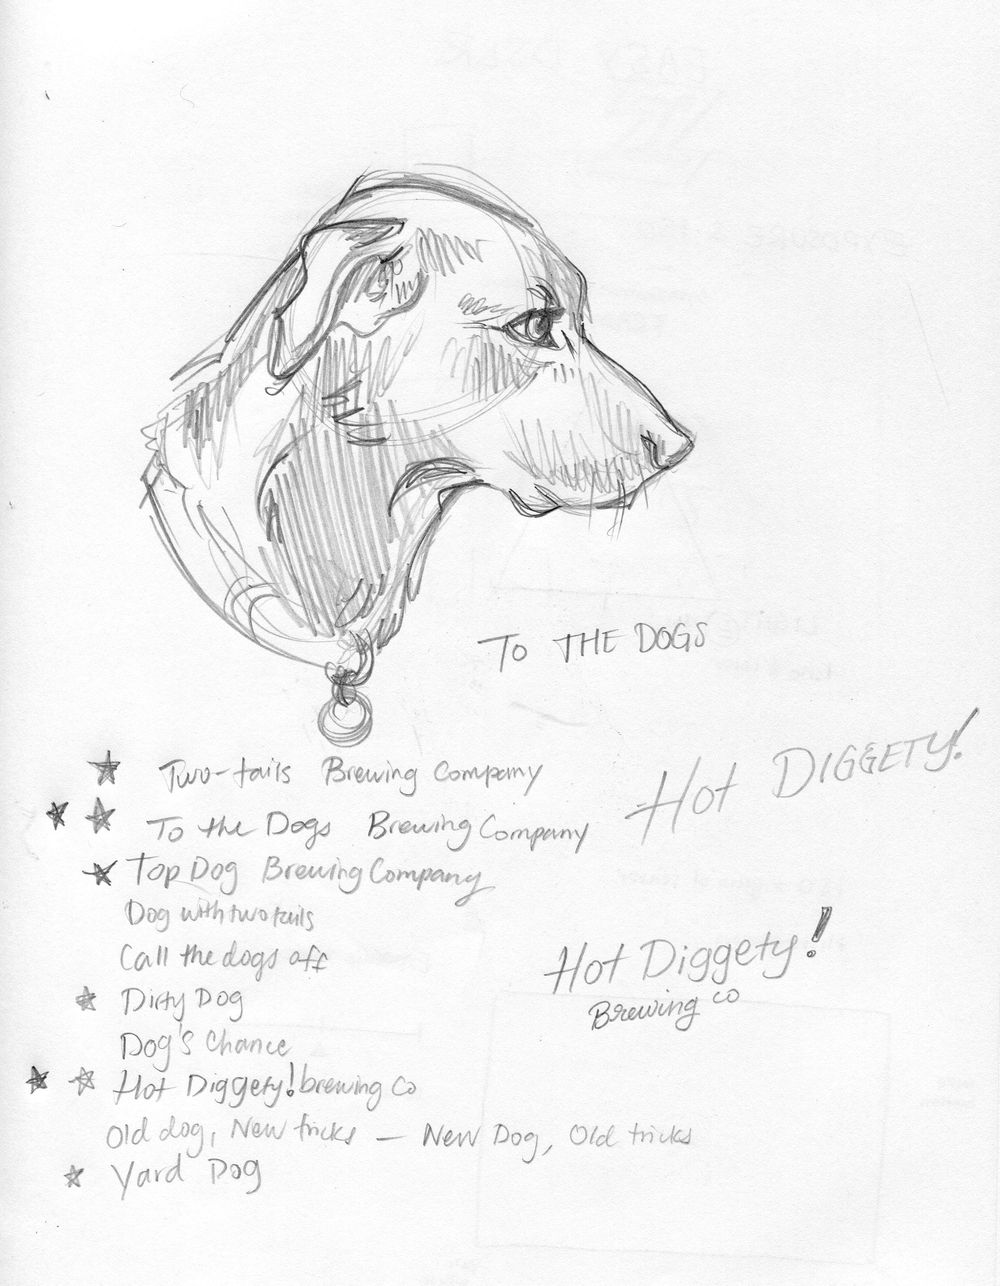 TO THE DOGS
Two-tails Brewing Company
Hot DIGGETY!
To the Dogs Brewing Company
Top Dog Brewing Company
Dog with two tails
Hot Diggety!
Call the dogs off
Brewing co
Dirty Dog
Dog's Chance
Hot Diggety! brewing Co
Old dog, New tricks — New Dog, Old tricks
Yard Dog